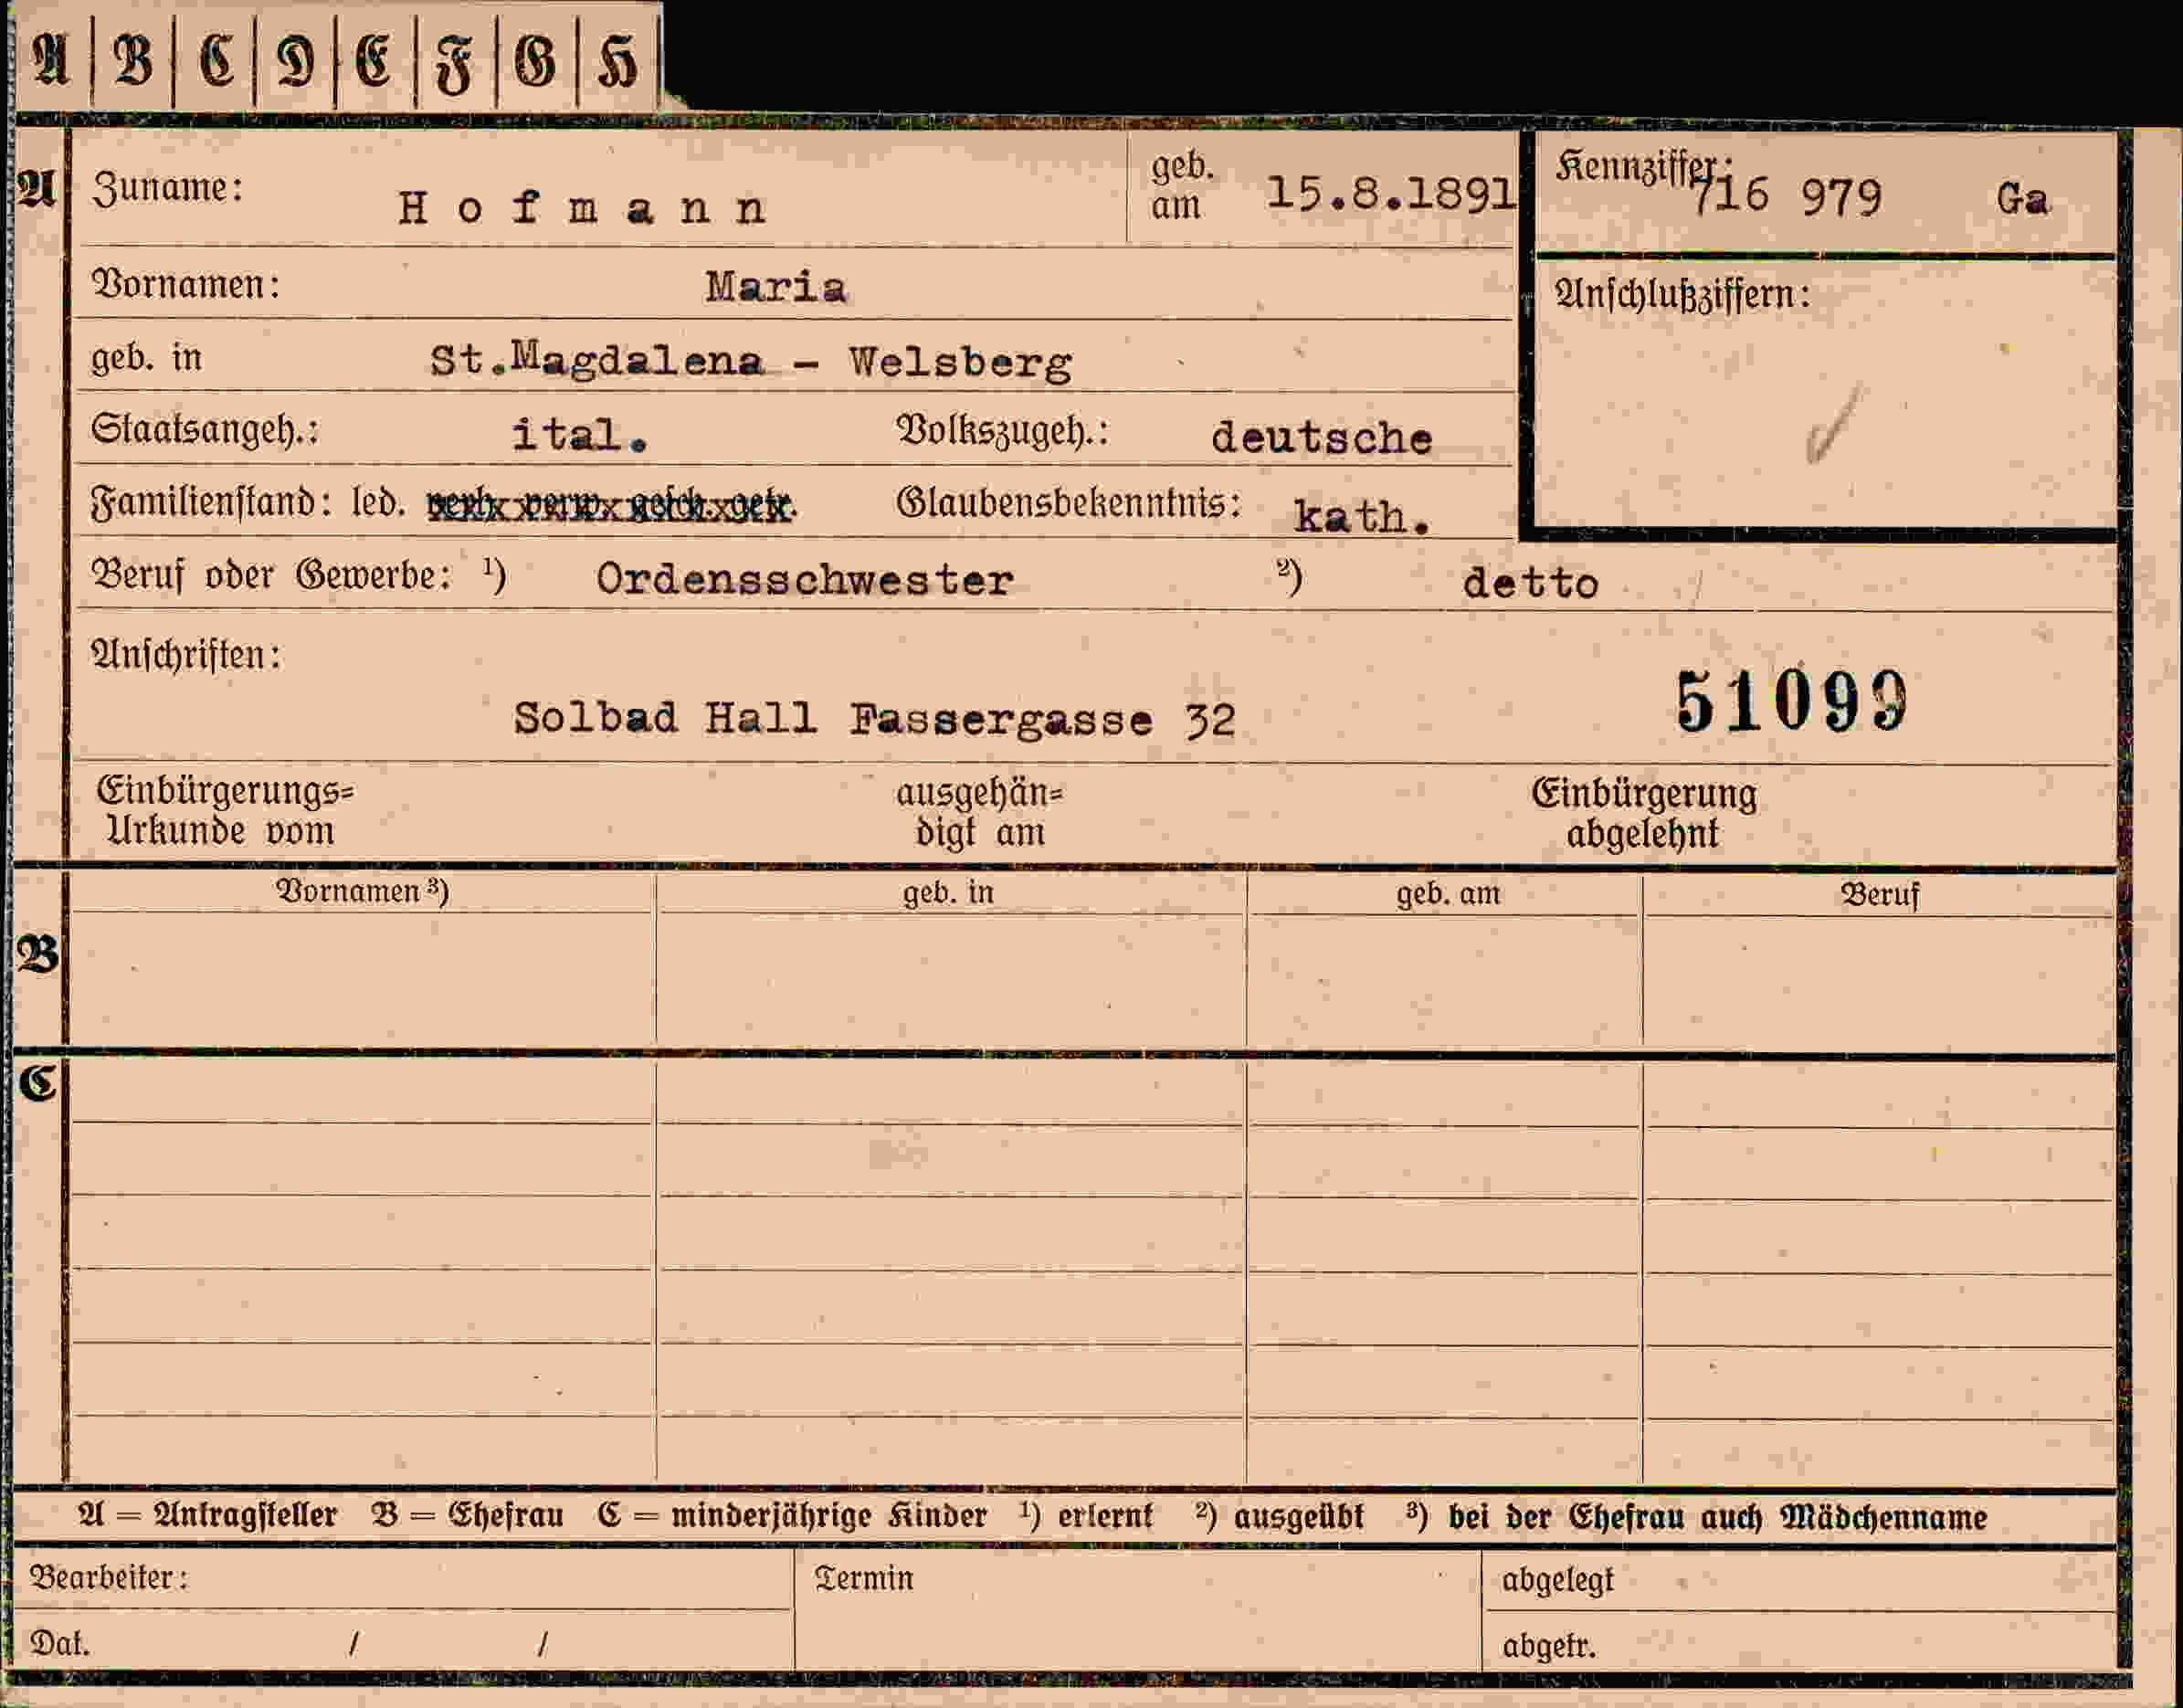 A B C D E F G H
A Zuname: Hofmann geb. am 15.8.1891 Kennziffer: 716 979 Ga
Vornamen: Maria Anschlußziffern:
geb. in St.Magdalena - Welsberg
Staatsangeh.: ital. Volkszugeh.: deutsche
Familienstand: led. verh. verw. gesch. getr. Glaubensbekenntnis: kath.
Beruf oder Gewerbe: ¹) Ordensschwester ²) detto
Anschriften:
Solbad Hall Fassergasse 32 51099
Einbürgerungs= ausgehän= Einbürgerung
Urkunde vom digt am abgelehnt
Vornamen ³) geb. in geb. am Beruf
B
C
A = Antragsteller B = Ehefrau C = minderjährige Kinder ¹) erlernt ²) ausgeübt ³) bei der Ehefrau auch Mädchenname
Bearbeiter: Termin abgelegt
Dat. / / abgetr.